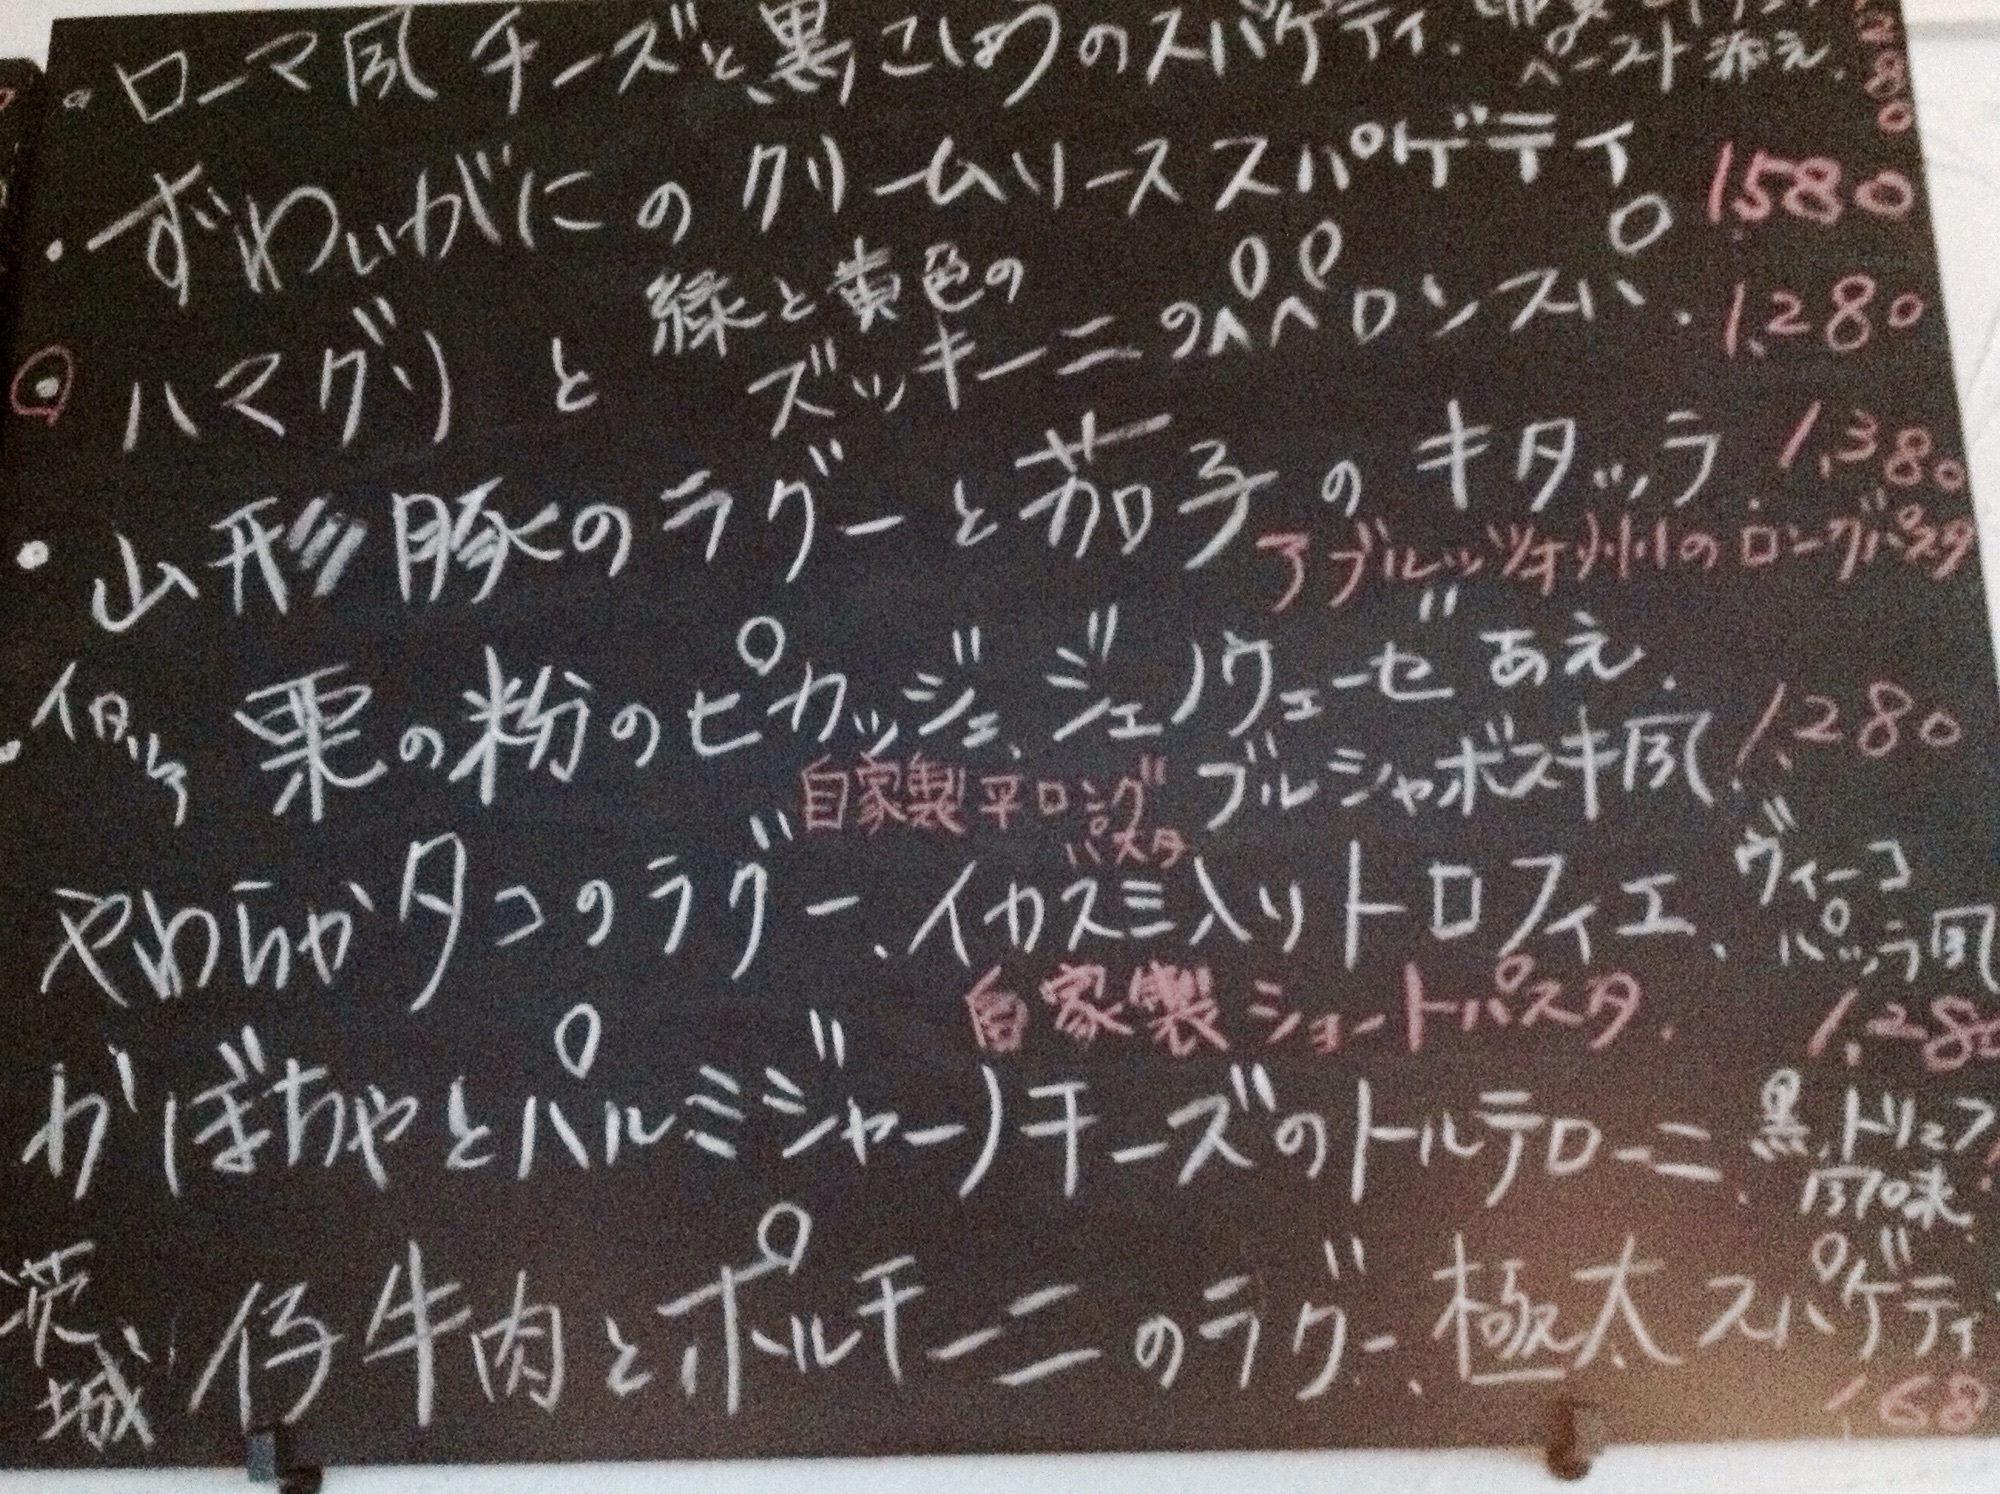 ローマ風 チーズと黒こしょうのスパゲティ.
ペースト添え.
1,280
・ずわいがにのクリームソーススパゲティ
1,580
緑と黄色の
・ハマグリとズッキーニのペペロンスパ.
1,280
・山形豚のラグーと茄子のキタッラ.
1,380
アブルッツォ州のロングパスタ
・イタリア 栗の粉のピカッジェ、ジェノヴェーゼあえ.
1,280
自家製平ロングパスタ
ブルシャボスキ風.
やわらかタコのラグー、イカスミ入りトロフィエ、
ヴィーコ
パッラ風
1,280
自家製ショートパスタ.
かぼちゃとパルミジャーノチーズのトルテローニ.
黒トリュフ
茨城 仔牛肉とポルチーニのラグー、極太スパゲティ
1,68